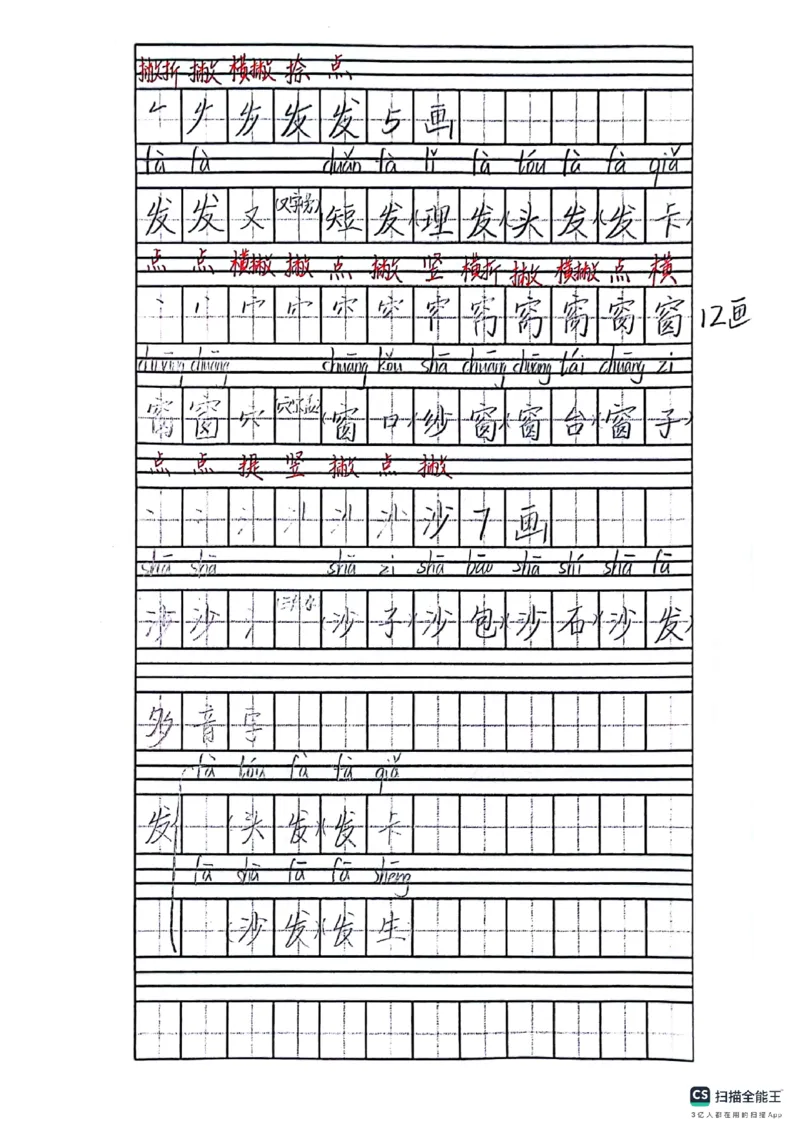 撇折 撇 横撇 捺 点
发 5 画
fà fà duǎn fà lǐ fà tóu fà fà qiǎ
发 发 又 (又字旁) 短 发 (理 发)(头 发)(发 卡)
点 点 横撇 撇 点 撇 竖 横折 撇 横撇 点 横
窗 12画
chuāng chuāng chuāng kǒu shā chuāng chuāng tái chuāng zi
窗 窗 穴 (窗 口)(纱 窗)(窗 台)(窗 子)
点 点 提 竖 撇 点 撇
沙 7 画
shā shā shā zi shā bāo shā shí shā fā
沙 沙 氵 (沙 子)(沙 包)(沙 石)(沙 发)
多 音 字
fà tóu fà fà qiǎ
发 (头 发)(发 卡
fā shā fā fā shēng
(沙 发)(发 生
CS 扫描全能王
3亿人都在用的扫描App